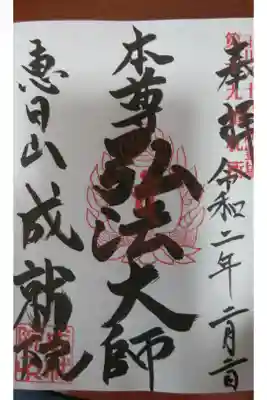 奉拝
令和二年二月二日
本尊弘法大師
恵日山
成就院